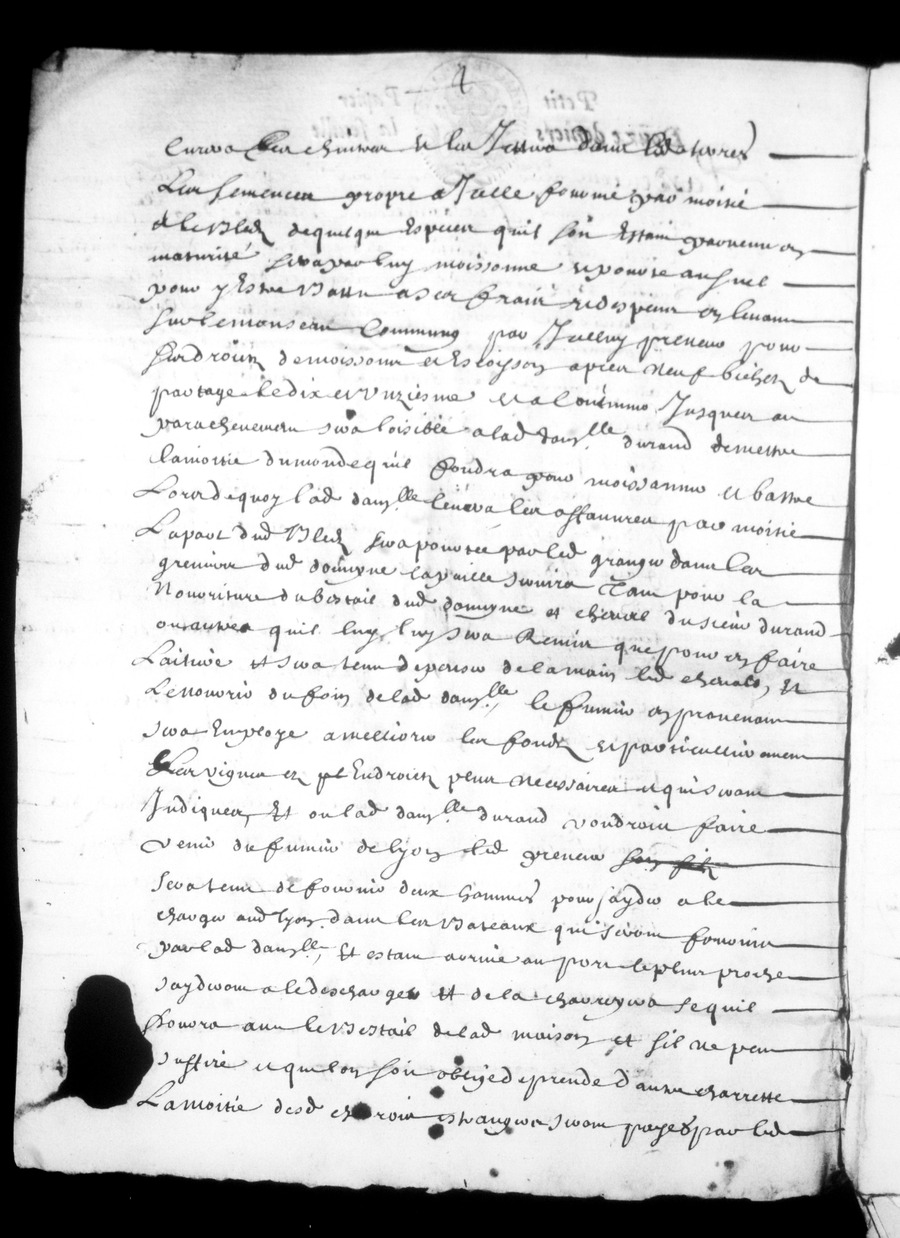 4
les semences propre a Icelle fournie par moitié
et le bled de quelque Espéces quil soit Estant parvenu en
maturité sera par luy moissonné et porté au suel
pour y Estre battu a ses fraix et despens en levant
sur le monseau Commung par Icelluy preneur pour
ses droictz de moissons et Escoysson apres neuf bichetz de
partage le dix et unziesme et a continuer Jusques au
parachevement sera loisible a lad dam.lle durand de mettre
la moitié du monde quil foudra pour moissonner et battre
Lors dequoy lad dam.lle levera les affanures par moitié
La part dud Bled sera portée par led granger dans les
greniers dud domeyne la paille servira Tant pour la
Nourriture du bestail dud domeyne et cheval du sieur durand
ou autres quil luy sera Remis que pour en faire
Laitiere et sera tenu de penser de la main led chevals, et
Le nourrir du foin de lad dam.lle, le fumier en provenant
sera Employé a melliorer les fondz et particullierement
Les vignes et Endroictz plus necessaires et qui seront
Indiques, Et ou lad dam.lle durand voudroit faire
venir du fumier de lyon led preneur
sera tenu de fournir deux hommes pour s'ayder a le
charger aud lyon dans les Bateaux qui seront fournir
par lad dam.lle, Et estant arrivé au port le plus proche
s'ayderont a le descharger et de la charreyera se quil
pourra avec le Bestail de lad maison et sil ne peut
suffire et que lon soit obligé de prendre d'autre charrette
La moitié desd charrois estrangers seront payés par led